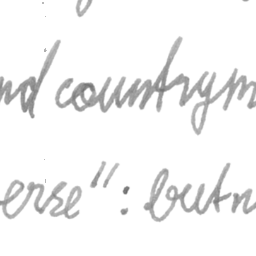 nd countrym
erse": but n